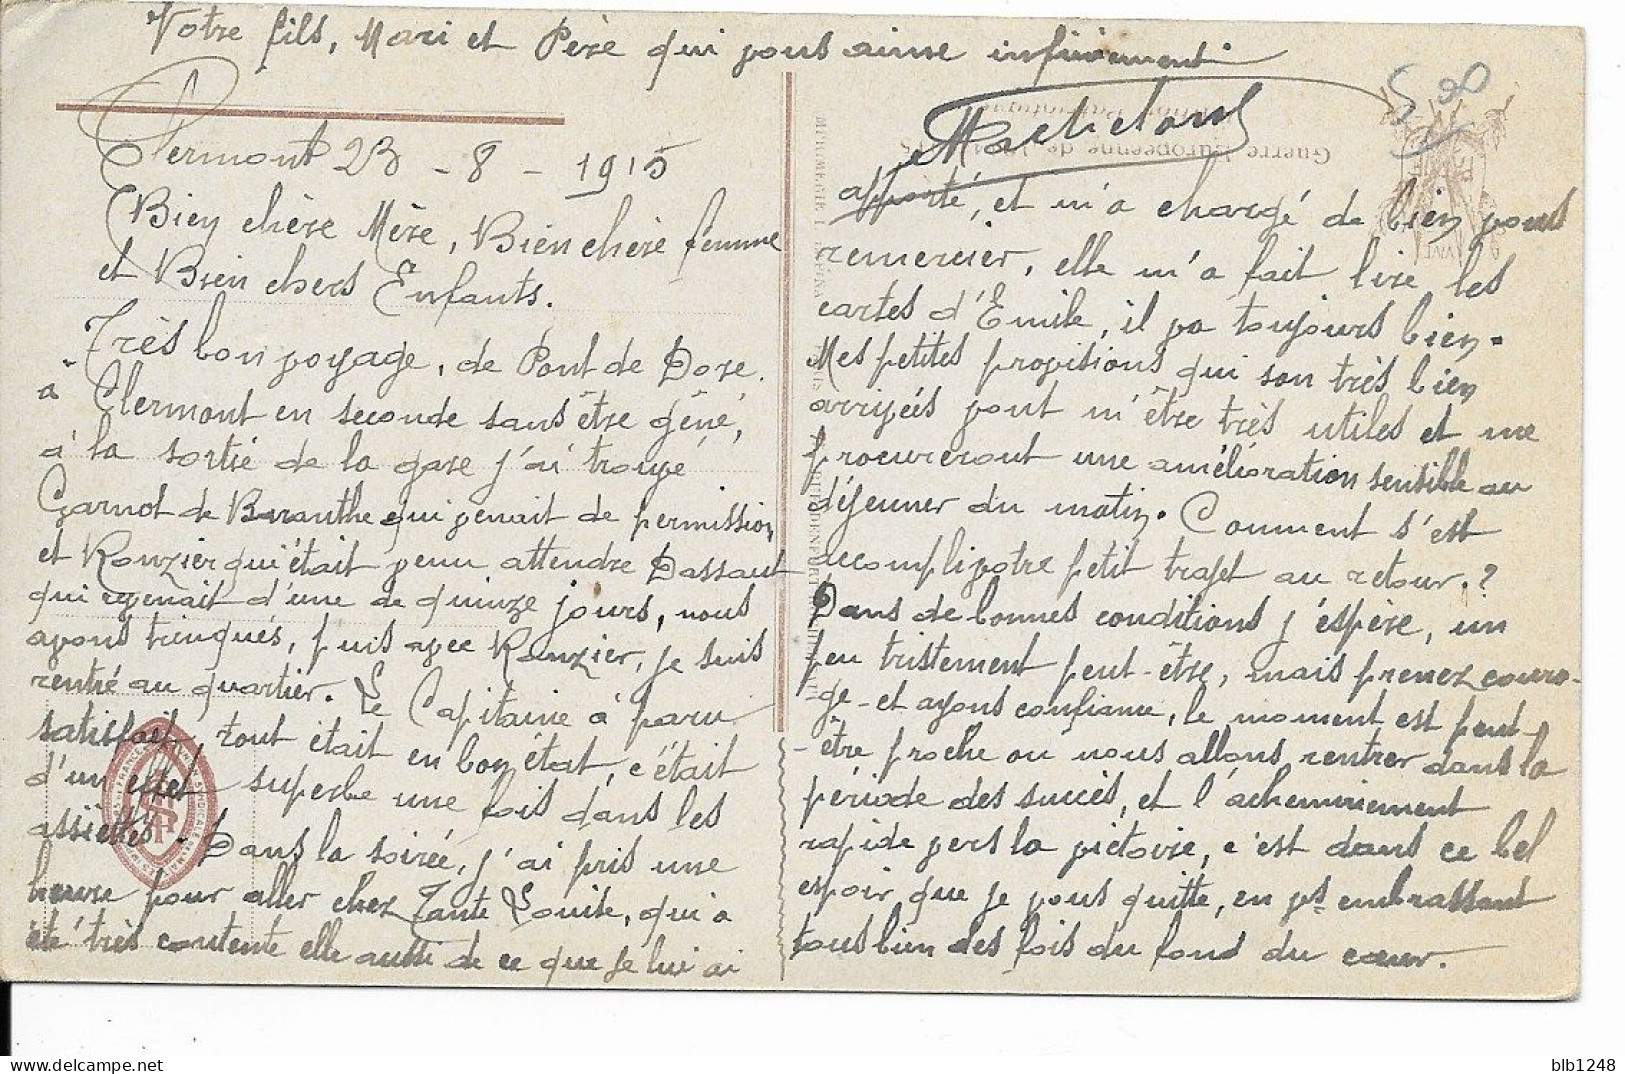 Votre fils, Mari et Père qui vous aime infiniment
Clermont 23 - 8 - 1915
Bien chère Mère, Bien chère femme
et Bien chers Enfants.
Très bon voyage, de Pont de Dore
à Clermont en seconde sans être géné,
à la sortie de la gare j'ai trouvé
Garnot de Baranthe qui venait de permission,
et Ronzier qui était venu attendre Dassaut
qui revenait d'une de quinze jours, nous
avons trinqués, puis avec Ronzier, je suis
rentré au quartier. Le Capitaine à paru
satisfait, tout était en bon état, c'était
d'un effet superbe une fois dans les
assiettes. Dans la soirée, j'ai pris une
heure pour aller chez Tante Louise, qui a
été très contente elle aussi de ce que je lui ai
apporté, et m'a chargé de bien vous
remercier, elle m'a fait lire les
cartes d'Emile, il va toujours bien.
Mes petites provisions qui son très bien
arrivées vont m'être très utiles et me
procureront une amélioration sensible au
déjeuner du matin. Comment s'est
accompli votre petit trajet au retour. ?
Dans de bonnes conditions j'espère, un
peu tristement peut-être, mais prenez coura-
ge et ayons confiance, le moment est peut-
-être proche ou nous allons rentrer dans la
période des succès, et l'acheminement
rapide vers la victoire, c'est dans ce bel
espoir que je vous quitte, en vs embrassant
tous bien des fois du fond du cœur.
Guerre Européenne de
blb1248